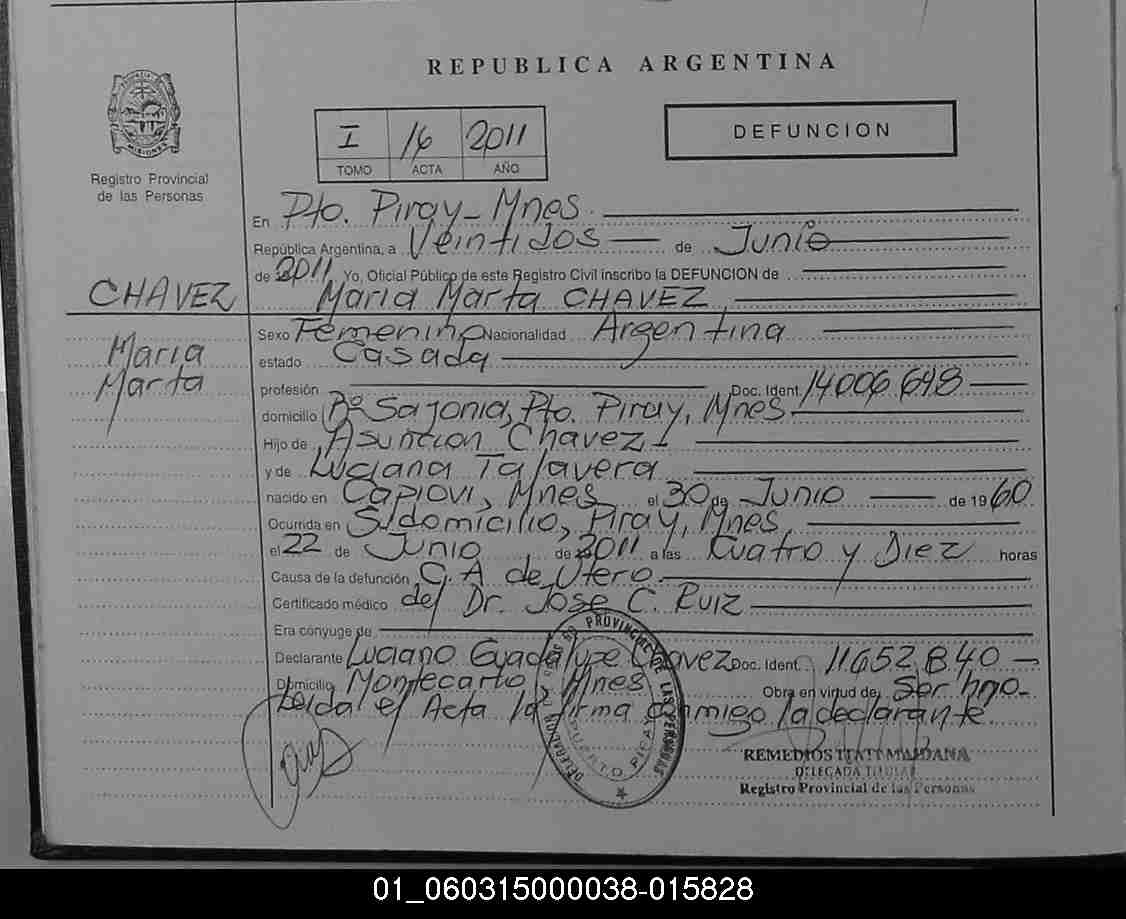 REPUBLICA ARGENTINA
MISIONES
Registro Provincial
de las Personas
I 16 2011
TOMO ACTA AÑO
DEFUNCION
En Pto. Piray - Mnes.
República Argentina, a Veintidos de Junio
de 2011 Yo, Oficial Público de este Registro Civil inscribo la DEFUNCION de
CHAVEZ
Maria Marta CHAVEZ
Maria
Marta
Sexo Femenino Nacionalidad Argentina
estado Casada
profesión Doc. Ident. 14006648
domicilio Bº Sajonia, Pto. Piray, Mnes
Hijo de Asuncion Chavez
y de Luciana Talavera
nacido en Capiovi, Mnes el 30 de Junio de 1960
Ocurrida en S/domicilio, Piray, Mnes
el 22 de Junio de 2011 a las Cuatro y Diez horas
Causa de la defunción C.A de Utero.
Certificado médico del Dr. Jose C. Ruiz
Era cónyuge de
Declarante Luciano Guadalupe Chavez Doc. Ident. 11652840
Domicilio Montecarlo, Mnes Obra en virtud de Ser hno-
Leida el Acta la firma conmigo la declarante.
PROVINCIAL DE LAS PERSONAS
DELEGACION
PUERTO PIRAY
REMEDIOS ITATI MAIDANA
DELEGADA TITULAR
Registro Provincial de las Personas
01_060315000038-015828